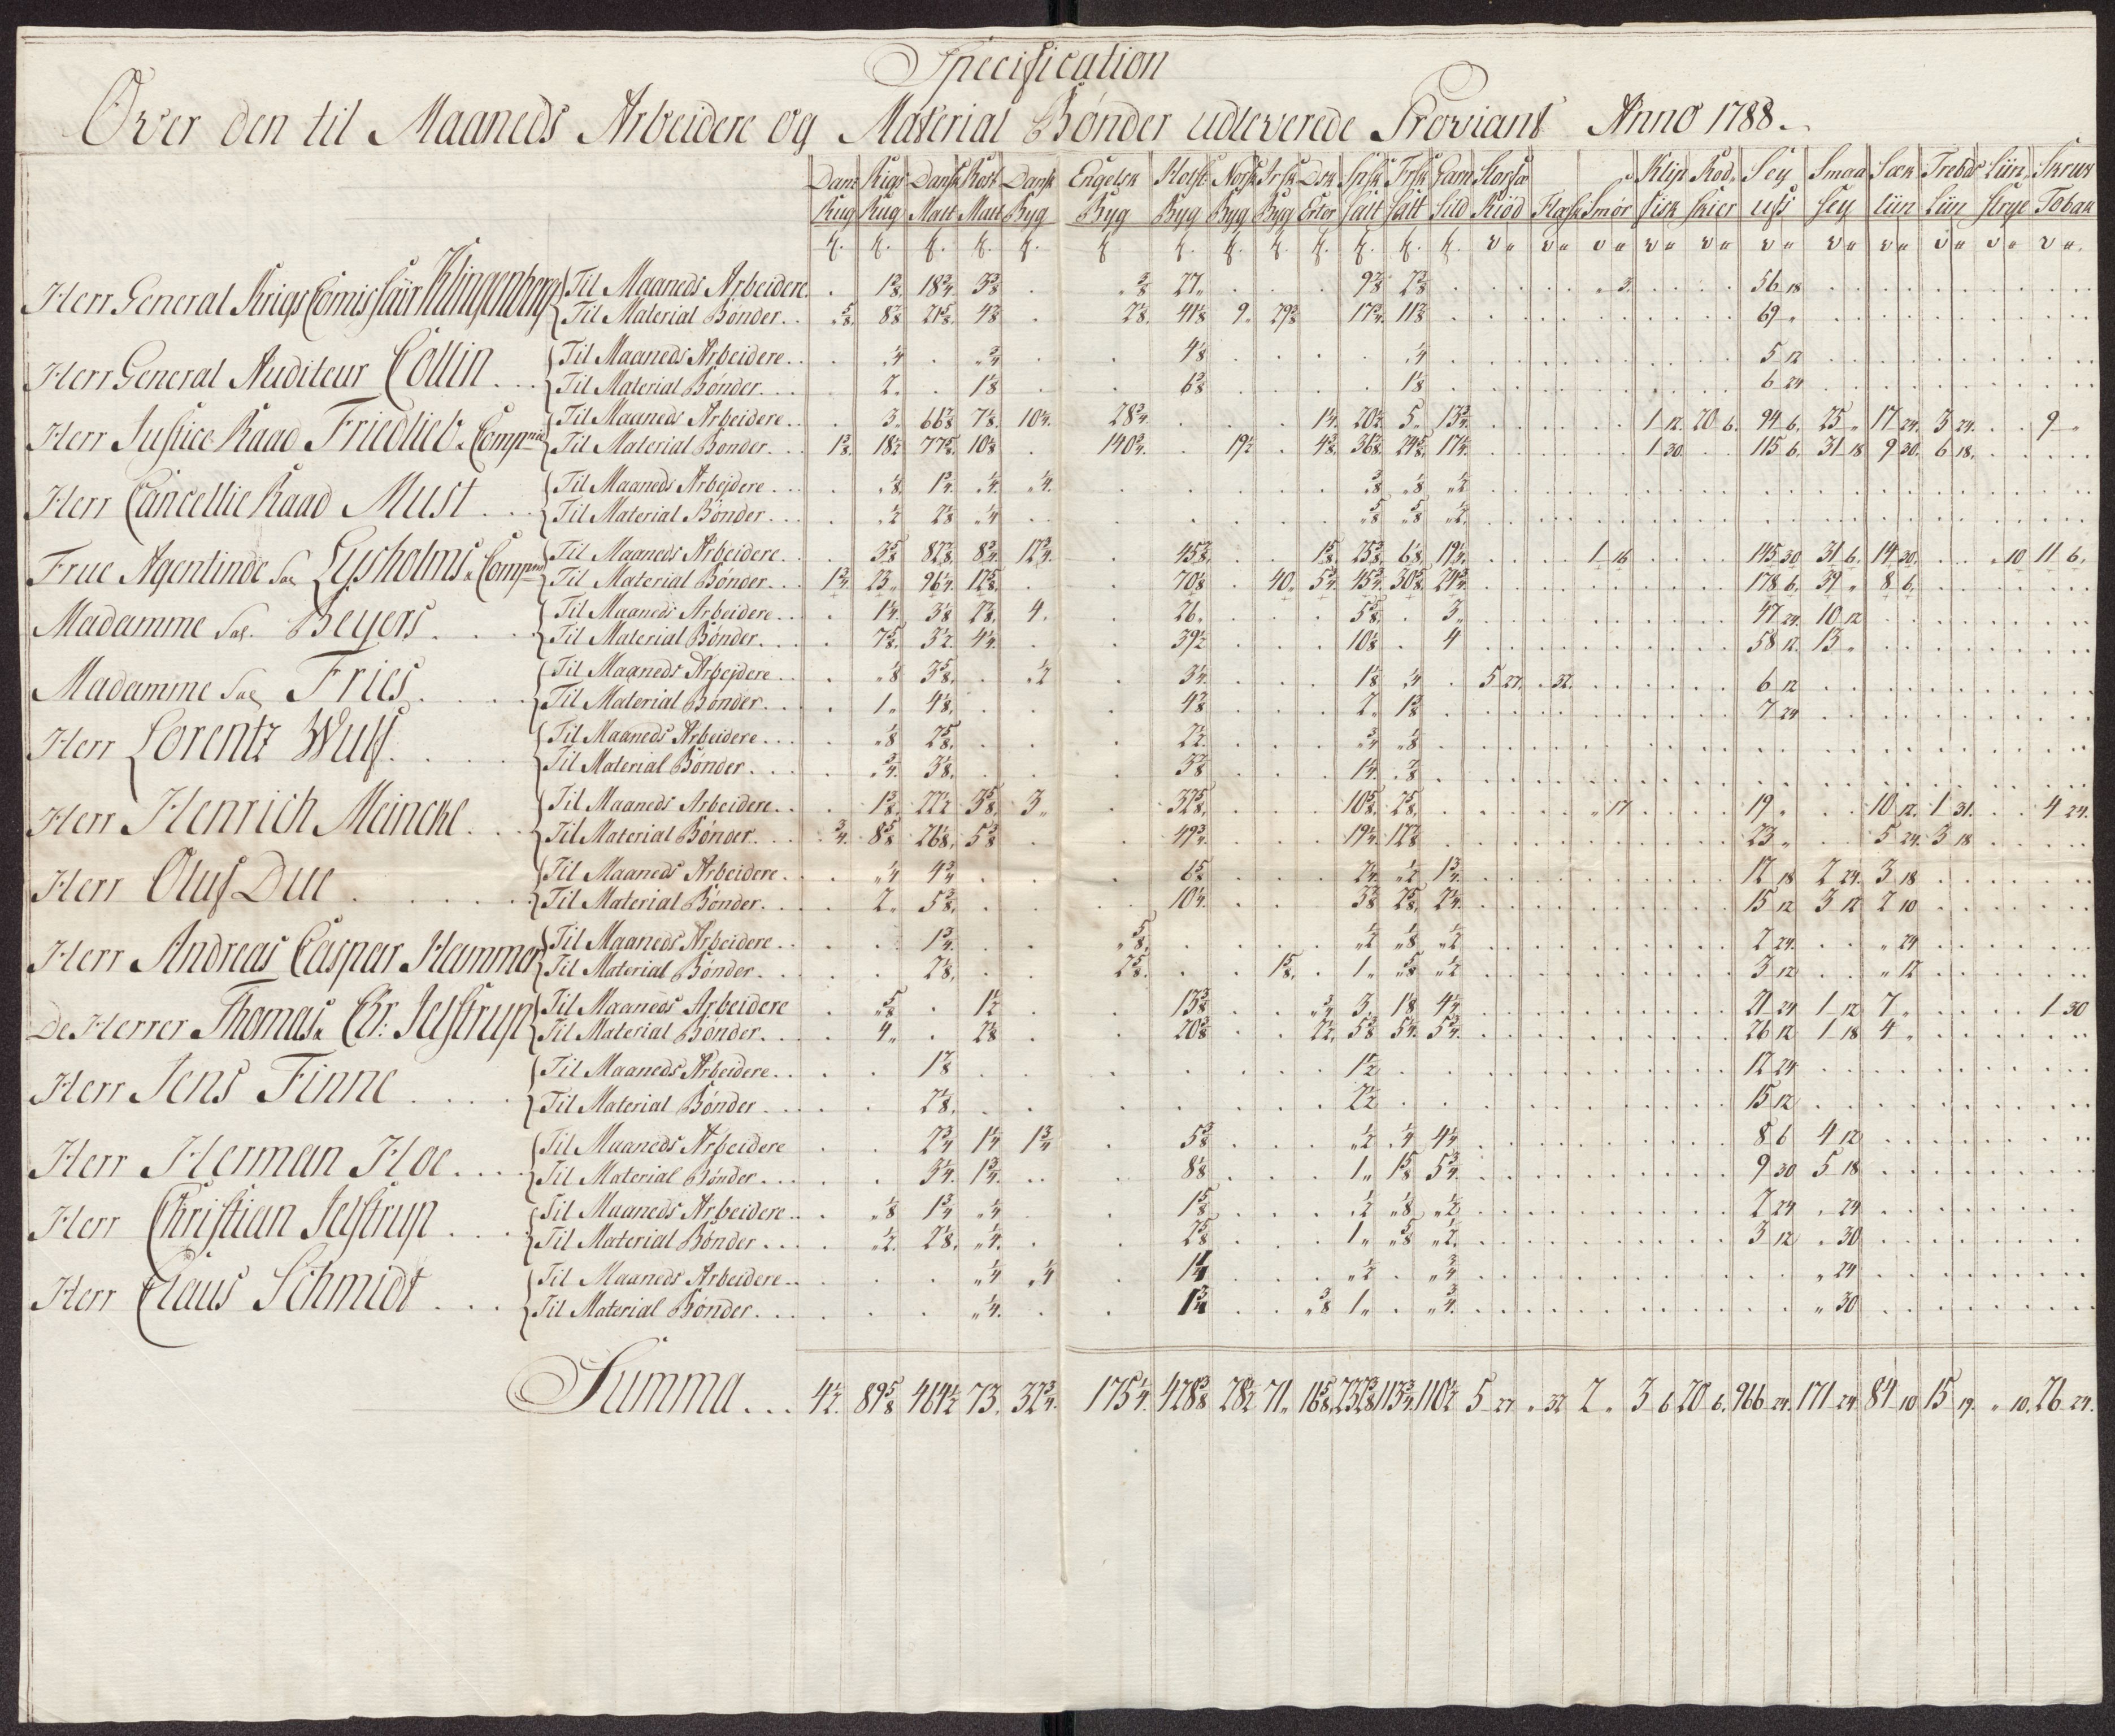 Specification
Over den til Maaneds Arbeidere og Material Bønder udleverede Proviant Anno 1788.
Dansk Rigs Dansk Rost Dansk Engelsk Holst Norsk Irsk Dsk Spsk Frsk Garn Klip Rod Sey Smaa Sæk Treblds Liin Skruv
Rug Rug Malt Malt Byg Byg Byg Byg Byg Erter Salt Salt Sild Kiød Flæsk Smør Fisk Skier ufs Sey Liin Liin Strye Tobak
Herr General Krigs Comissair Klingenberg
Til Maaneds Arbeidere 1 3/8 18 3/4 3 3/8 " 3/8 27 " 9 3/8 7 3/8 " 3 56 18
Til Material Bønder " 5/8 8 1/8 21 5/8 4 3/8 2 1/8 41 1/8 9 " 29 3/8 17 3/4 11 3/8 69 "
Herr General Auditeur Collin
Til Maaneds Arbeidere " 1/4 " 3/4 4 1/8 " 1/4 5 12
Til Material Bønder 2 " 1 1/8 6 3/8 1 1/8 6 24
Herr Justice Raad Friedlieb & Compnie
Til Maaneds Arbeidere 3 " 66 3/8 7 1/8 10 1/4 28 3/4 1 1/4 20 1/2 5 " 13 3/4 1 12 20 6 94 6 25 " 17 24 3 24 9 "
Til Material Bønder 1 3/8 18 1/2 77 5/8 10 1/8 140 3/4 19 1/2 4 3/8 36 3/8 24 5/8 17 1/4 1 30 115 6 31 18 9 30 6 18
Herr Cancellie Raad Must
Til Maaneds Arbejdere " 1/8 1 3/4 " 1/4 " 1/4 " 3/8 " 1/8 " 1/2
Til Material Bønder " 1/2 2 1/8 " 1/4 " 5/8 " 5/8 " 1/2
Frue Agentinde Sal Lysholms & Compnie
Til Maaneds Arbeidere 3 5/8 82 3/8 8 3/4 12 3/4 45 3/8 1 5/8 25 3/8 6 1/8 19 1/4 1 16 145 30 31 6 14 30 " 10 11 6
Til Material Bønder 1 3/4 23 " 96 1/4 12 5/8 70 1/8 40 " 5 3/4 45 3/4 30 5/8 24 3/4 178 6 39 " 8 6
Madamme Sal. Beyers
Til Maaneds Arbeidere 1 1/4 3 1/8 2 7/8 4 26 " 5 5/8 3 " 47 24 10 12
Til Material Bønder 7 5/8 3 1/2 4 1/4 39 1/2 10 1/8 4 58 12 13 "
Madamme Sal Fries
Til Maaneds Arbejdere " 1/8 3 5/8 " 1/2 3 1/4 1 1/8 " 1/4 5 27 " 32 6 12
Til Material Bønder 1 " 4 1/8 4 3/8 2 " 1 3/8 7 24
Herr Lorentz Wulf
Til Maaneds Arbeidere " 1/8 2 5/8 2 1/2 " 3/4 " 1/8
Til Material Bønder " 3/4 3 1/8 3 7/8 1 1/4 " 7/8
Herr Henrich Meincke
Til Maaneds Arbeidere 1 3/8 22 1/2 3 5/8 3 " 32 5/8 10 5/8 2 5/8 " 17 19 " 10 12 1 31 4 24
Til Material Bønder " 3/4 8 5/8 26 1/8 5 3/8 49 3/4 19 1/4 12 7/8 23 " 5 24 3 18
Herr Oluf Due
Til Maaneds Arbeidere " 1/4 4 3/4 6 5/8 2 1/4 " 1/2 1 3/4 12 18 2 24 3 18
Til Material Bønder 2 " 5 3/8 10 1/4 3 3/8 2 5/8 2 1/4 15 12 3 12 2 10
Herr Andreas Caspar Hammer
Til Maaneds Arbeidere 1 3/4 " 5/8 " 1/2 " 1/8 " 1/2 2 24 " 24
Til Material Bønder 2 1/8 2 5/8 1 5/8 1 " " 5/8 " 1/2 3 12 " 12
De Herrer Thomas & Chr: Jelstrup
Til Maaneds Arbeidere " 5/8 1 1/2 13 3/8 " 3/4 3 " 1 1/8 4 1/4 21 24 1 12 7 " 1 30
Til Material Bønder 4 " 2 1/8 20 3/8 2 1/2 5 3/8 5 1/4 5 3/4 26 12 1 18 4 "
Herr Jens Finne
Til Maaneds Arbeidere 1 7/8 1 1/2 12 24
Til Material Bønder 2 1/8 2 1/2 15 12
Herr Herman Hoe
Til Maaneds Arbeidere 2 3/4 1 1/4 1 3/4 5 3/8 " 1/2 " 1/4 4 1/4 8 6 4 12
Til Material Bønder 3 1/4 1 3/4 8 1/8 1 " 1 5/8 5 3/4 9 30 5 18
Herr Christian Jelstrup
Til Maaneds Arbeidere " 1/8 1 3/4 " 1/4 1 5/8 " 1/2 " 1/8 " 1/2 2 24 " 24
Til Material Bønder " 1/2 2 1/8 " 1/4 2 5/8 1 " " 5/8 " 1/2 3 12 " 30
Herr Claus Schmidt
Til Maaneds Arbeidere " 1/4 " 1/4 1 1/4 " 1/2 " 3/4 " 24
Til Material Bønder " 1/4 1 3/4 " 3/8 1 " " 3/4 " 30
Summa 4 1/2 89 5/8 464 1/2 73 32 3/4 175 1/4 428 3/8 28 1/2 71 " 16 5/8 235 3/8 113 3/4 110 1/2 5 27 " 32 2 " 3 6 20 6 966 24 171 24 84 10 15 19 " 10 26 24